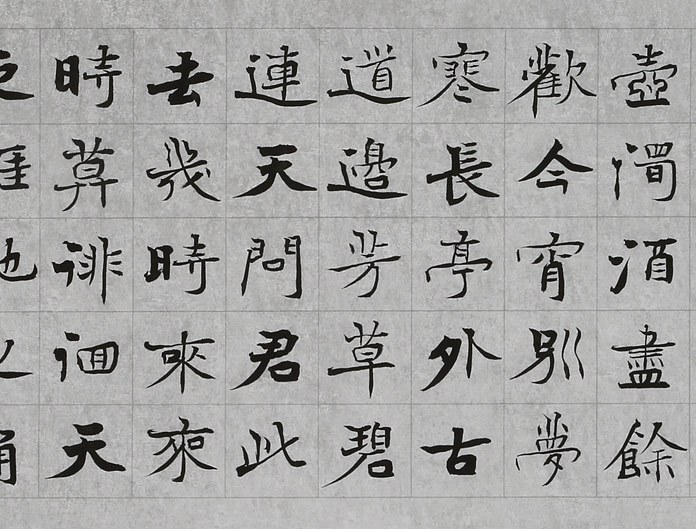 壺濁酒盡餘
歡今宵別夢
寒長亭外古
道邊芳草碧
連天問君此
去幾時來來
時莫徘徊天
之涯地之角